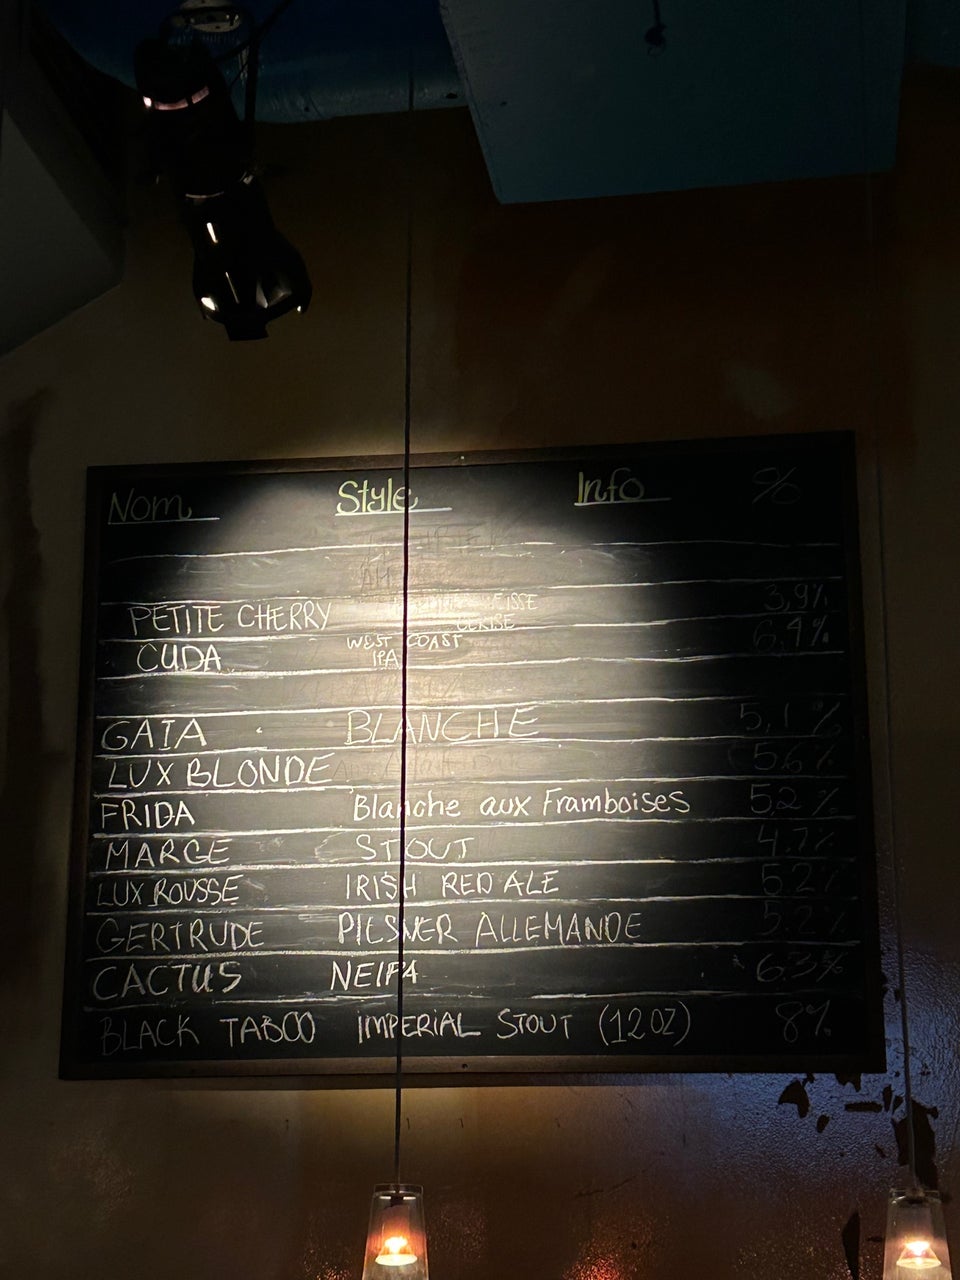 Nom Style Info %
PETITE CHERRY 3,9%
CERISE
CUDA WEST COAST 6,4%
IPA
GAIA BLANCHE 5,1%
LUX BLONDE 5.6%
FRIDA Blanche aux Framboises 5,2 %
MARGE STOUT 4.7%
LUX ROUSSE IRISH RED ALE 5.2%
GERTRUDE PILSNER ALLEMANDE 5.2%
CACTUS NEIPA 6.3%
BLACK TABOO IMPERIAL STOUT (12OZ) 8%